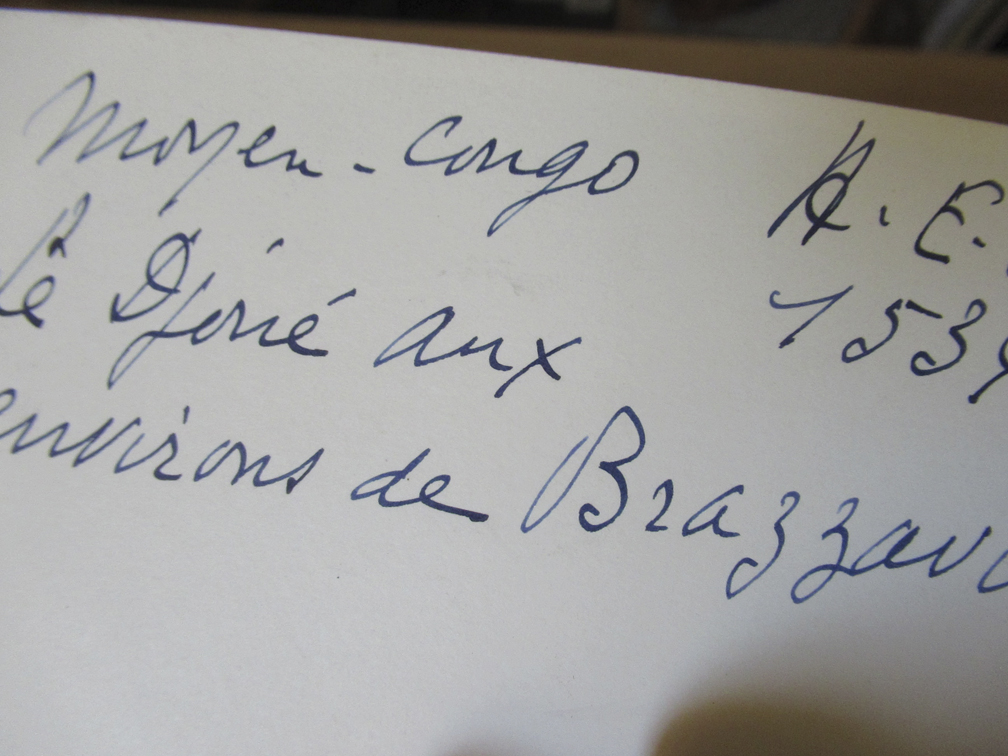 Moyen-Congo A.E.
Le Djoué aux 1539
environs de Brazzav